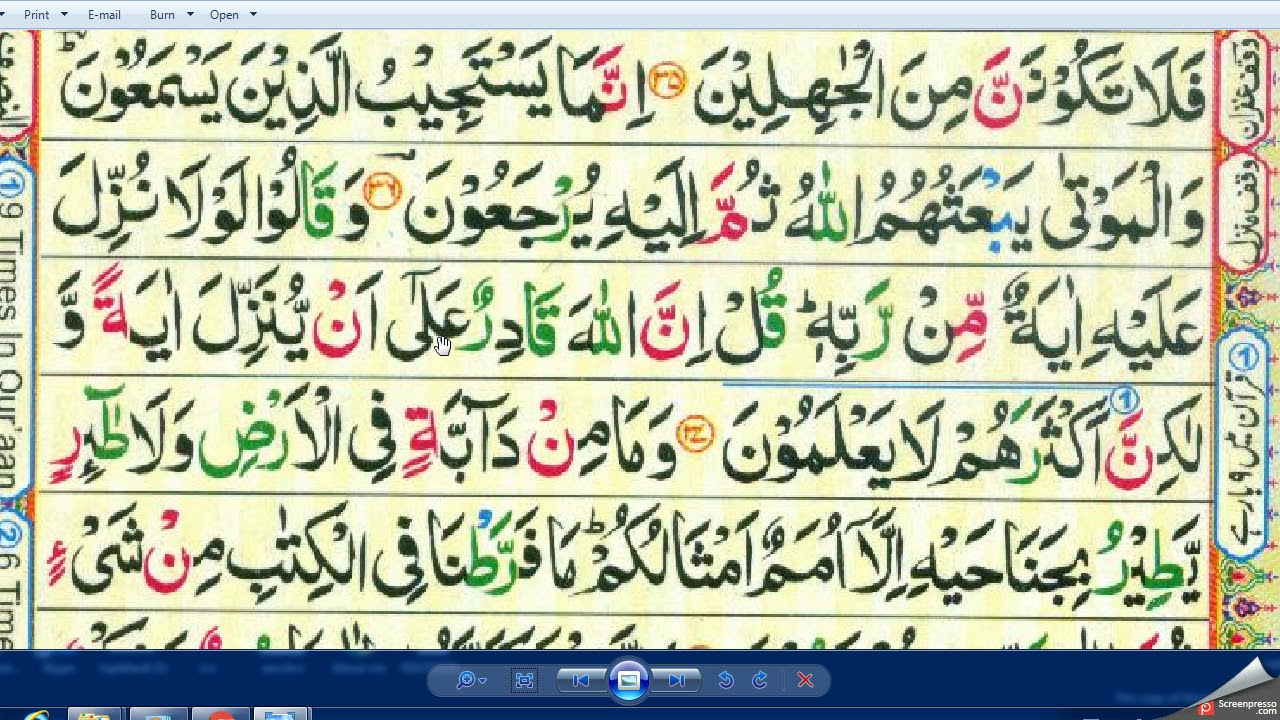 Print E-mail Burn Open
فَلَا تَكُوْنَنَّ مِنَ الْجٰهِلِيْنَ ۝۳۵ اِنَّمَا يَسْتَجِيْبُ الَّذِيْنَ يَسْمَعُوْنَ ؕ
وَالْمَوْتٰى يَبْعَثُهُمُ اللّٰهُ ثُمَّ اِلَيْهِ يُرْجَعُوْنَ ۝۳۶ وَقَالُوْا لَوْلَا نُزِّلَ
عَلَيْهِ اٰيَةٌ مِّنْ رَّبِّهٖ ؕ قُلْ اِنَّ اللّٰهَ قَادِرٌ عَلٰٓى اَنْ يُّنَزِّلَ اٰيَةً وَّ
لٰكِنَّ اَكْثَرَهُمْ لَا يَعْلَمُوْنَ ۝۳۷ وَمَا مِنْ دَآبَّةٍ فِى الْاَرْضِ وَلَا طٰٓئِرٍ
يَّطِيْرُ بِجَنَاحَيْهِ اِلَّآ اُمَمٌ اَمْثَالُكُمْ ؕ مَا فَرَّطْنَا فِى الْكِتٰبِ مِنْ شَىْءٍ
وقف غفران
وقف منزل
① قرآن میں ۹ بار ہے
① 9 Times In Qur'aan
② 6 Time
Screenpresso
.com